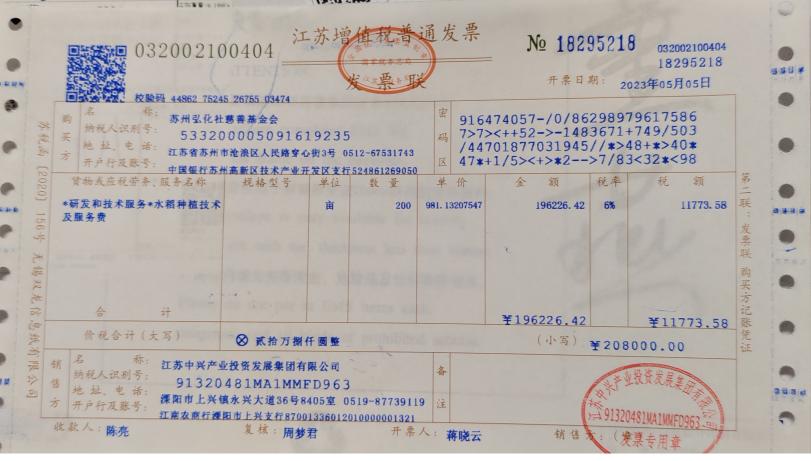 032002100404
江苏增值税普通发票
发票联
№ 18295218
032002100404
18295218
校验码 44862 75245 26755 03474
开票日期: 2023年05月05日
购买方
名 称: 苏州弘化社慈善基金会
纳税人识别号: 53320000509161​9235
地址、电话: 江苏省苏州市沧浪区人民路穿心街3号 0512-67531743
开户行及账号: 中国银行苏州高新区技术产业开发区支行524861269050
密码区
916474057-/0/86298979617586
7>7><+<52->-1483671+749/503
/44701877031945//*>48+*>40*
47*+1/5><+>*2-->7/83<32*<98
货物或应税劳务、服务名称 规格型号 单位 数量 单价 金额 税率 税额
*研发和技术服务*水稻种植技术及服务费 亩 200 981.13207547 196226.42 6% 11773.58
合 计 ¥196226.42 ¥11773.58
价税合计(大写) ⊗ 贰拾万捌仟圆整 (小写) ¥208000.00
销售方
名 称: 江苏中兴产业投资发展集团有限公司
纳税人识别号: 91320481MA1MMFD963
地址、电话: 溧阳市上兴镇永兴大道36号8405室 0519-87739119
开户行及账号: 江南农商行溧阳市上兴支行8700133601201000000​1321
备注
收款人: 陈亮 复核: 周梦君 开票人: 蒋晓云 销售方:
江苏中兴产业投资发展集团有限公司
91320481MA1MMFD963
发票专用章
苏税函〔2020〕156号 无锡双龙信息纸有限公司
第二联:发票联 购买方记账凭证